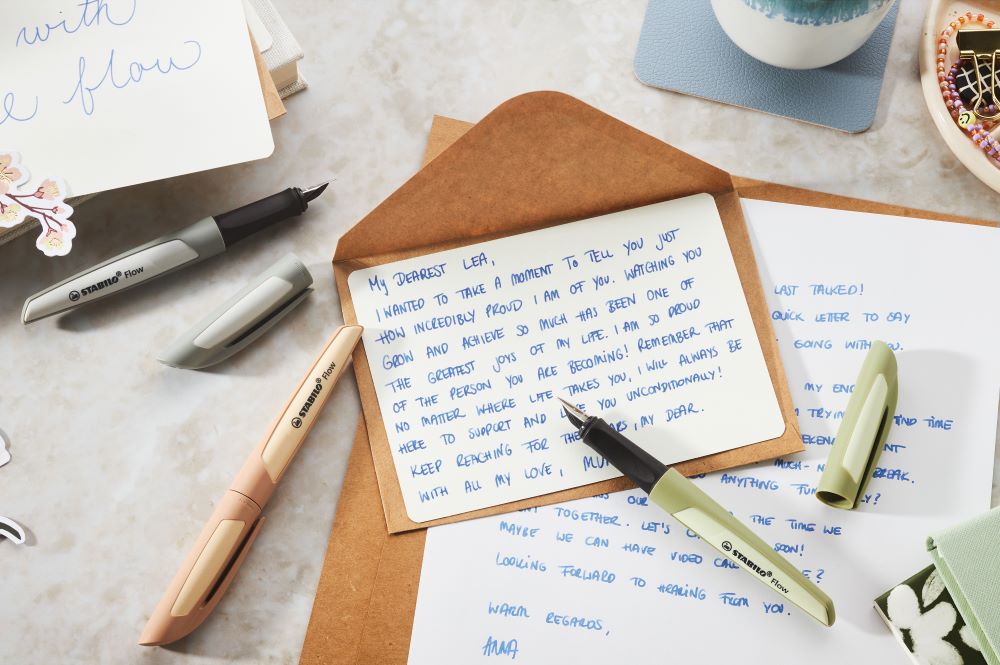 with
e flow
STABILO® Flow
STABILO® Flow
My DEAREST LEA,
I WANTED TO TAKE A MOMENT TO TELL YOU JUST
HOW INCREDIBLY PROUD I AM OF YOU. WATCHING YOU
GROW AND ACHIEVE SO MUCH HAS BEEN ONE OF
THE GREATEST JOYS OF MY LIFE. I AM SO PROUD
OF THE PERSON YOU ARE BECOMING! REMEMBER THAT
NO MATTER WHERE LIFE TAKES YOU, I WILL ALWAYS BE
HERE TO SUPPORT AND YOU UNCONDITIONALLY!
KEEP REACHING FOR THE , MY DEAR.
WITH ALL MY LOVE, MU
STABILO® Flow
LAST TALKED!
QUICK LETTER TO SAY
GOING WITH YOU.
MY
TRYIN FIND TIME
NT
MUCH- BREAK.
ANYTHING FUN LY?
OUR
TOGETHER. LET'S THE TIME WE
MAYBE WE CAN HAVE VIDEO SOON!
LOOKING FORWARD TO HEARING FROM YOU.
WARM REGARDS,
ANNA